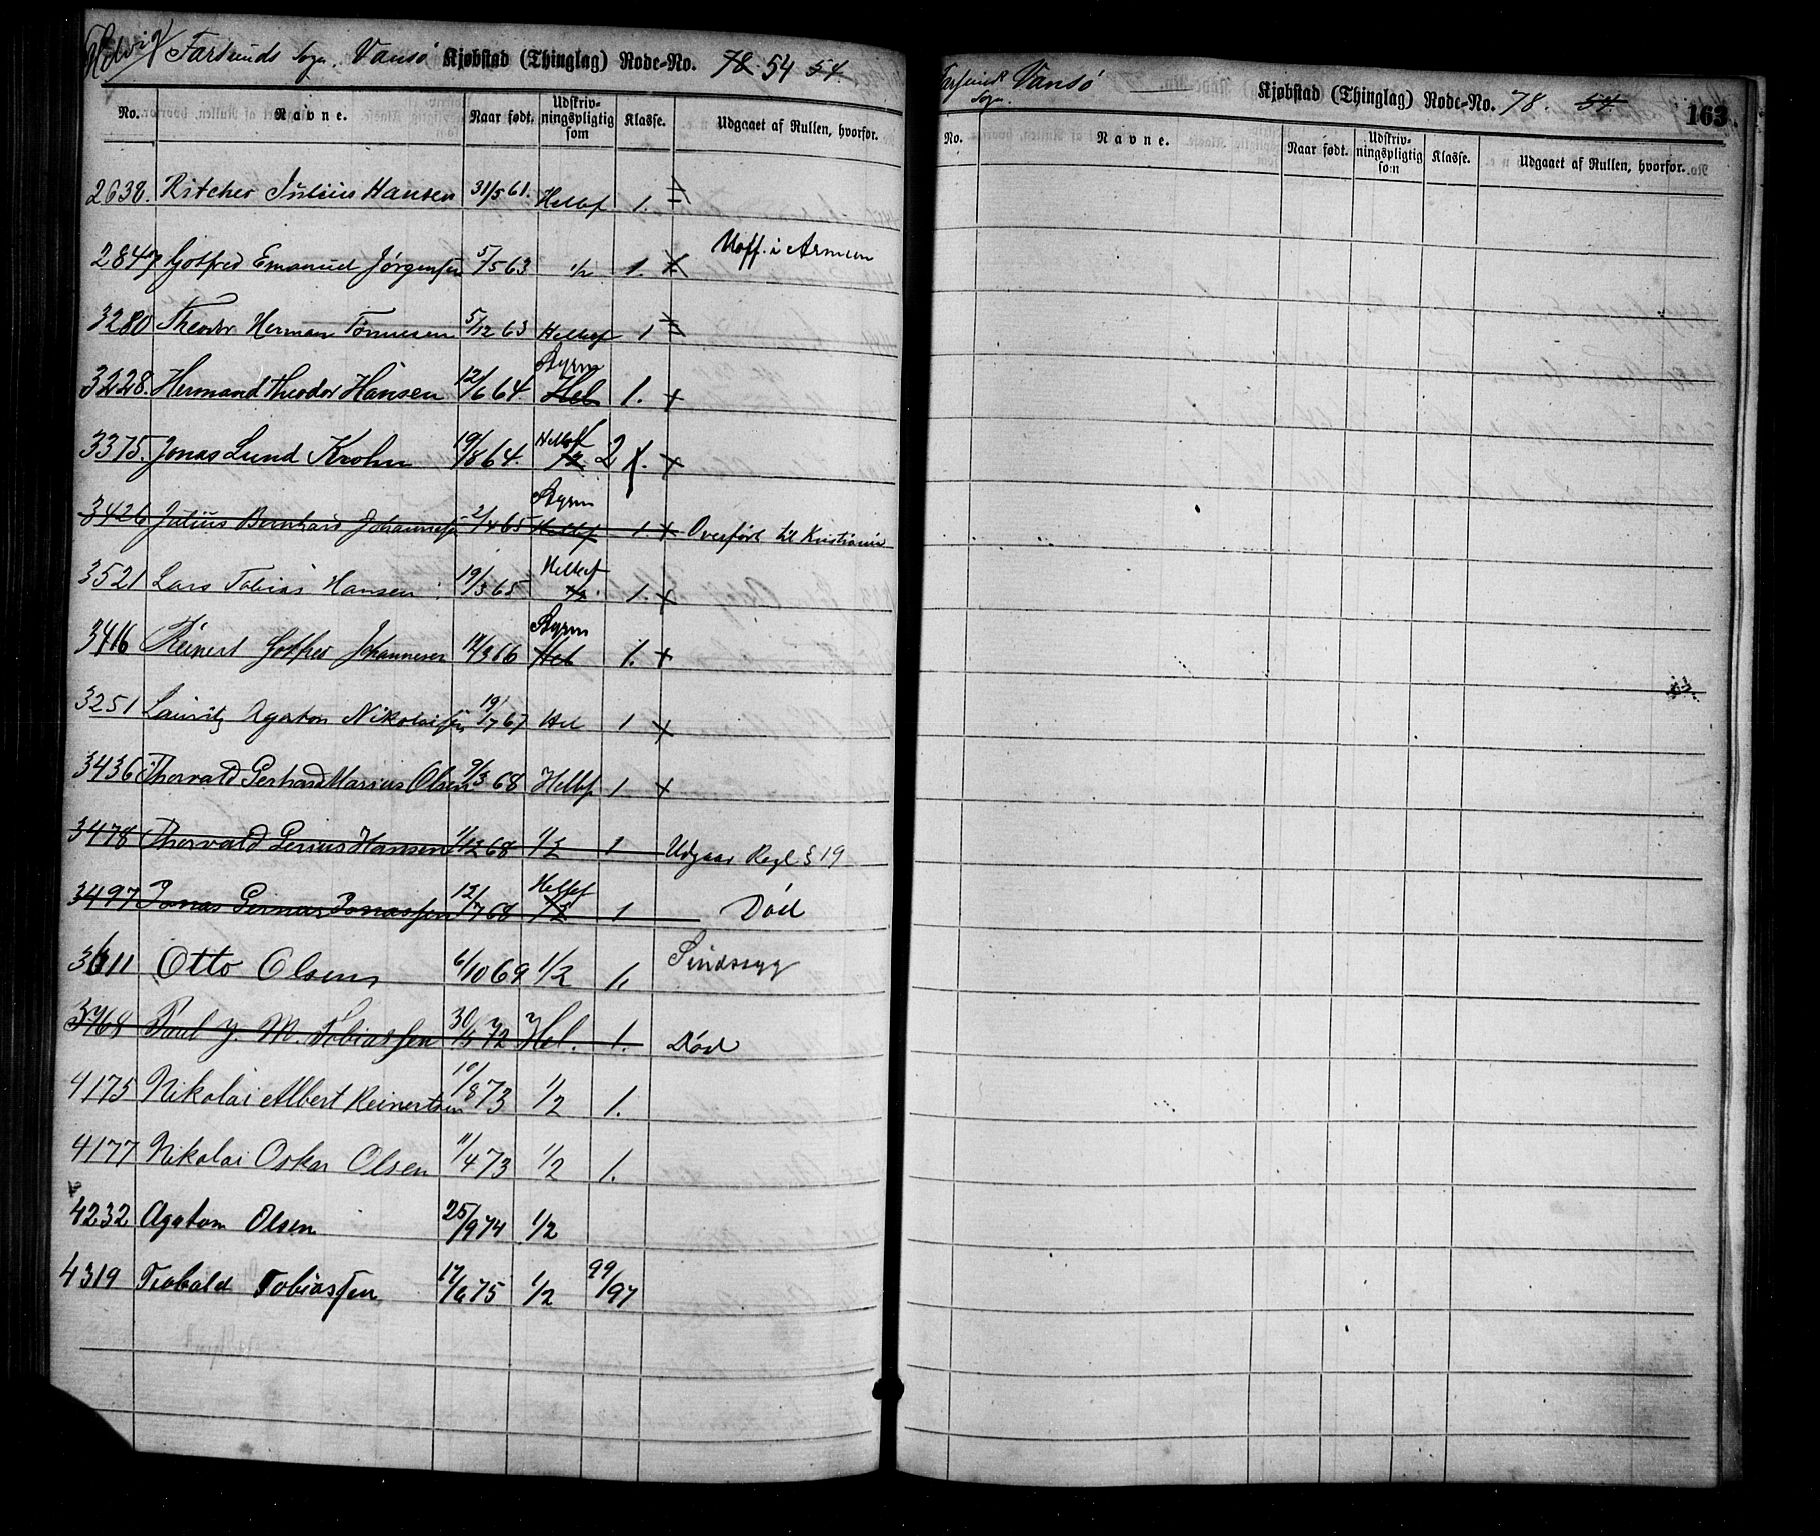 Helvig Farsunds Sogn. Vansø Kjøbstad (Thinglag) Rode-No. 78. 54 54.
No. Navne. Naar født. Udskrivningspligtig som Klasse. Udgaaet af Rullen, hvorfor.
2638. Ritcher Julius Hansen 31/5 61. Helbf 1.
2847 Gotfred Emanuel Jørgensen 5/5 63 1/2 1. X Uoff. i Armeen
3280 Theodor Herman Tønnesen 5/12 63 Helbef 1
3228. Hermand Theodor Hansen 12/6 64. Styrm Hel 1. x
3375. Jonas Lund Krohn 19/8 64. Helbef 1/2 2 1. x
3426 Julius Bernhard Johannesen 2/4 65 Styrm Helbef 1. x Overført til Kristiania
3521 Lars Tobias Hansen 19/3 65 Helbef 1/2. 1. x
3416 Reinert Gotfred Johannesen 14/3 66 Styrm Hel 1. x
3251 Lauritz Agaton Nikolaisen 19/7 67 Hel 1 x
3436 Thorvald Gerhard Marius Olsen 9/3 68 Helbf 1. x
3478 Thorvald Gerius Hansen 1/12 68 1/2 1 Udgaar Regl § 19
3497 Jonas Pernar Jonassen 12/7 68 Helbef 1/2 1 Død
3611 Otto Olsen 6/10 69 1/2 1. Sindssyg
3968 Paul J. M. Tobiassen 30/5 72 Hel. 1. Død
4175 Nikolai Albert Reinertsen 10/8 73 1/2 1.
4177 Nikolai Oskar Olsen 11/4 73 1/2 1.
4232 Agaton Olsen 25/9 74 1/2
4319 Teobald Tobiassen 17/6 75 1/2 99/97
Farsund Sogn. Vansø Kjøbstad (Thinglag) Rode-No. 78. 54 163
No. Navne. Naar født. Udskrivningspligtig som Klasse. Udgaaet af Rullen, hvorfor.